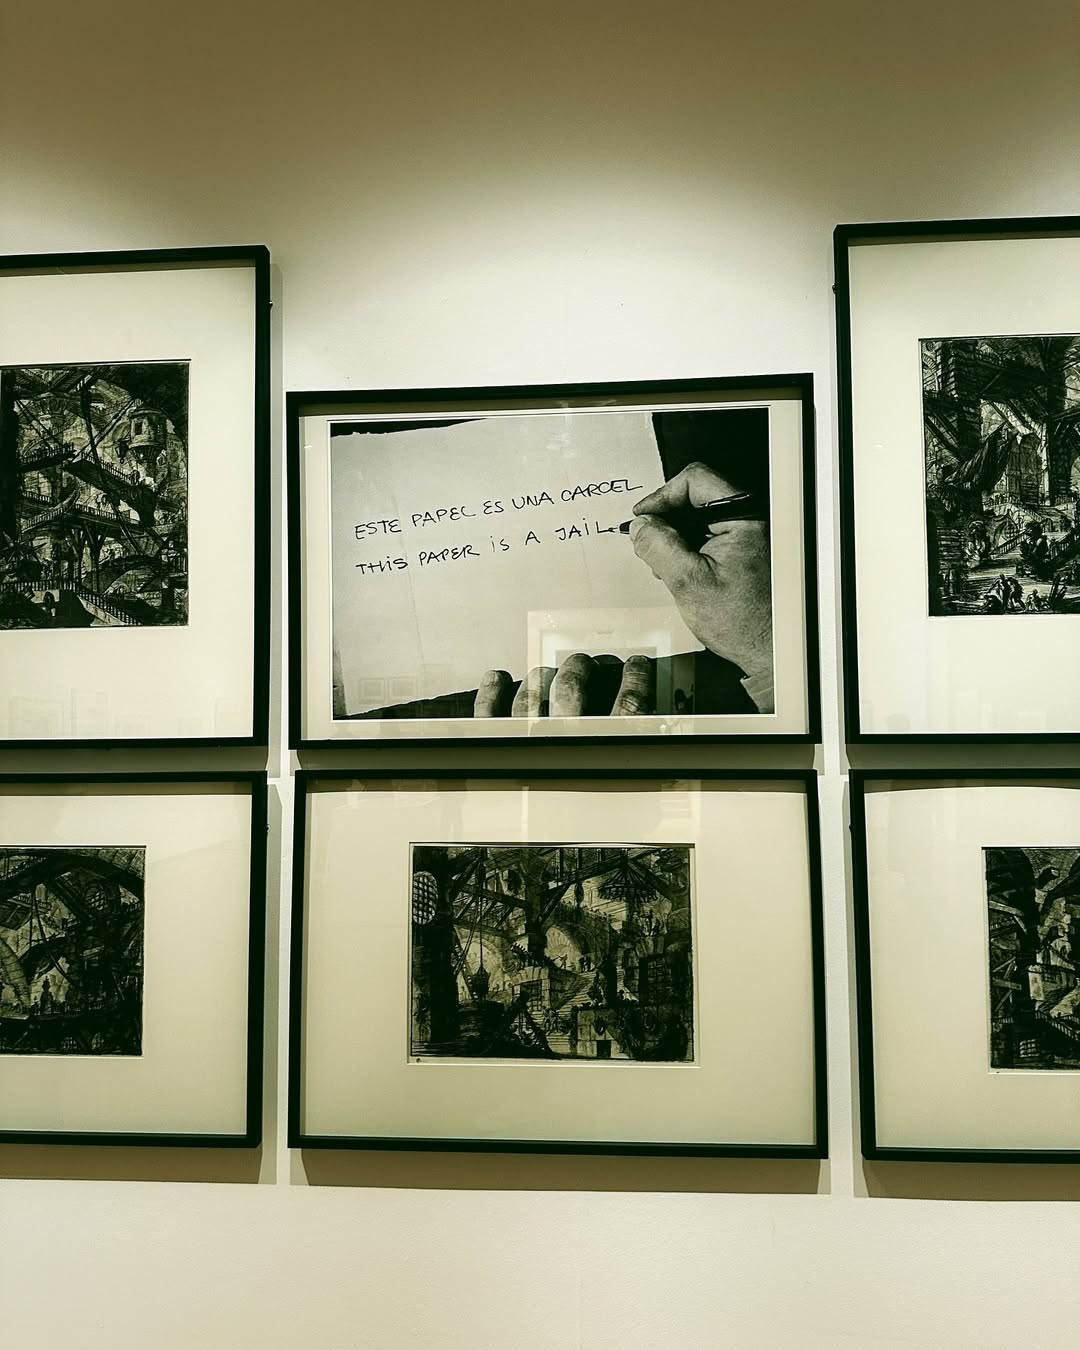 ESTE PAPEL ES UNA CARCEL
THIS PAPER IS A JAIL